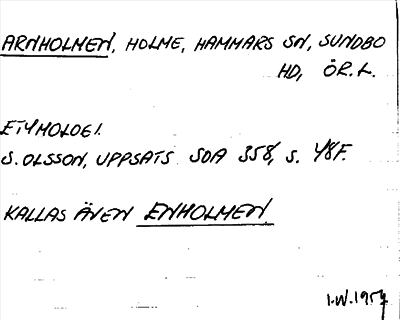 ARNHOLMEN, HOLME, HAMMARS SN, SUNDBO
HD, ÖR.L.
ETYMOLOGI.
S. OLSSON, UPPSATS SOA 358, S. 48F.
KALLAS ÄVEN ENHOLMEN
I.W. 1957